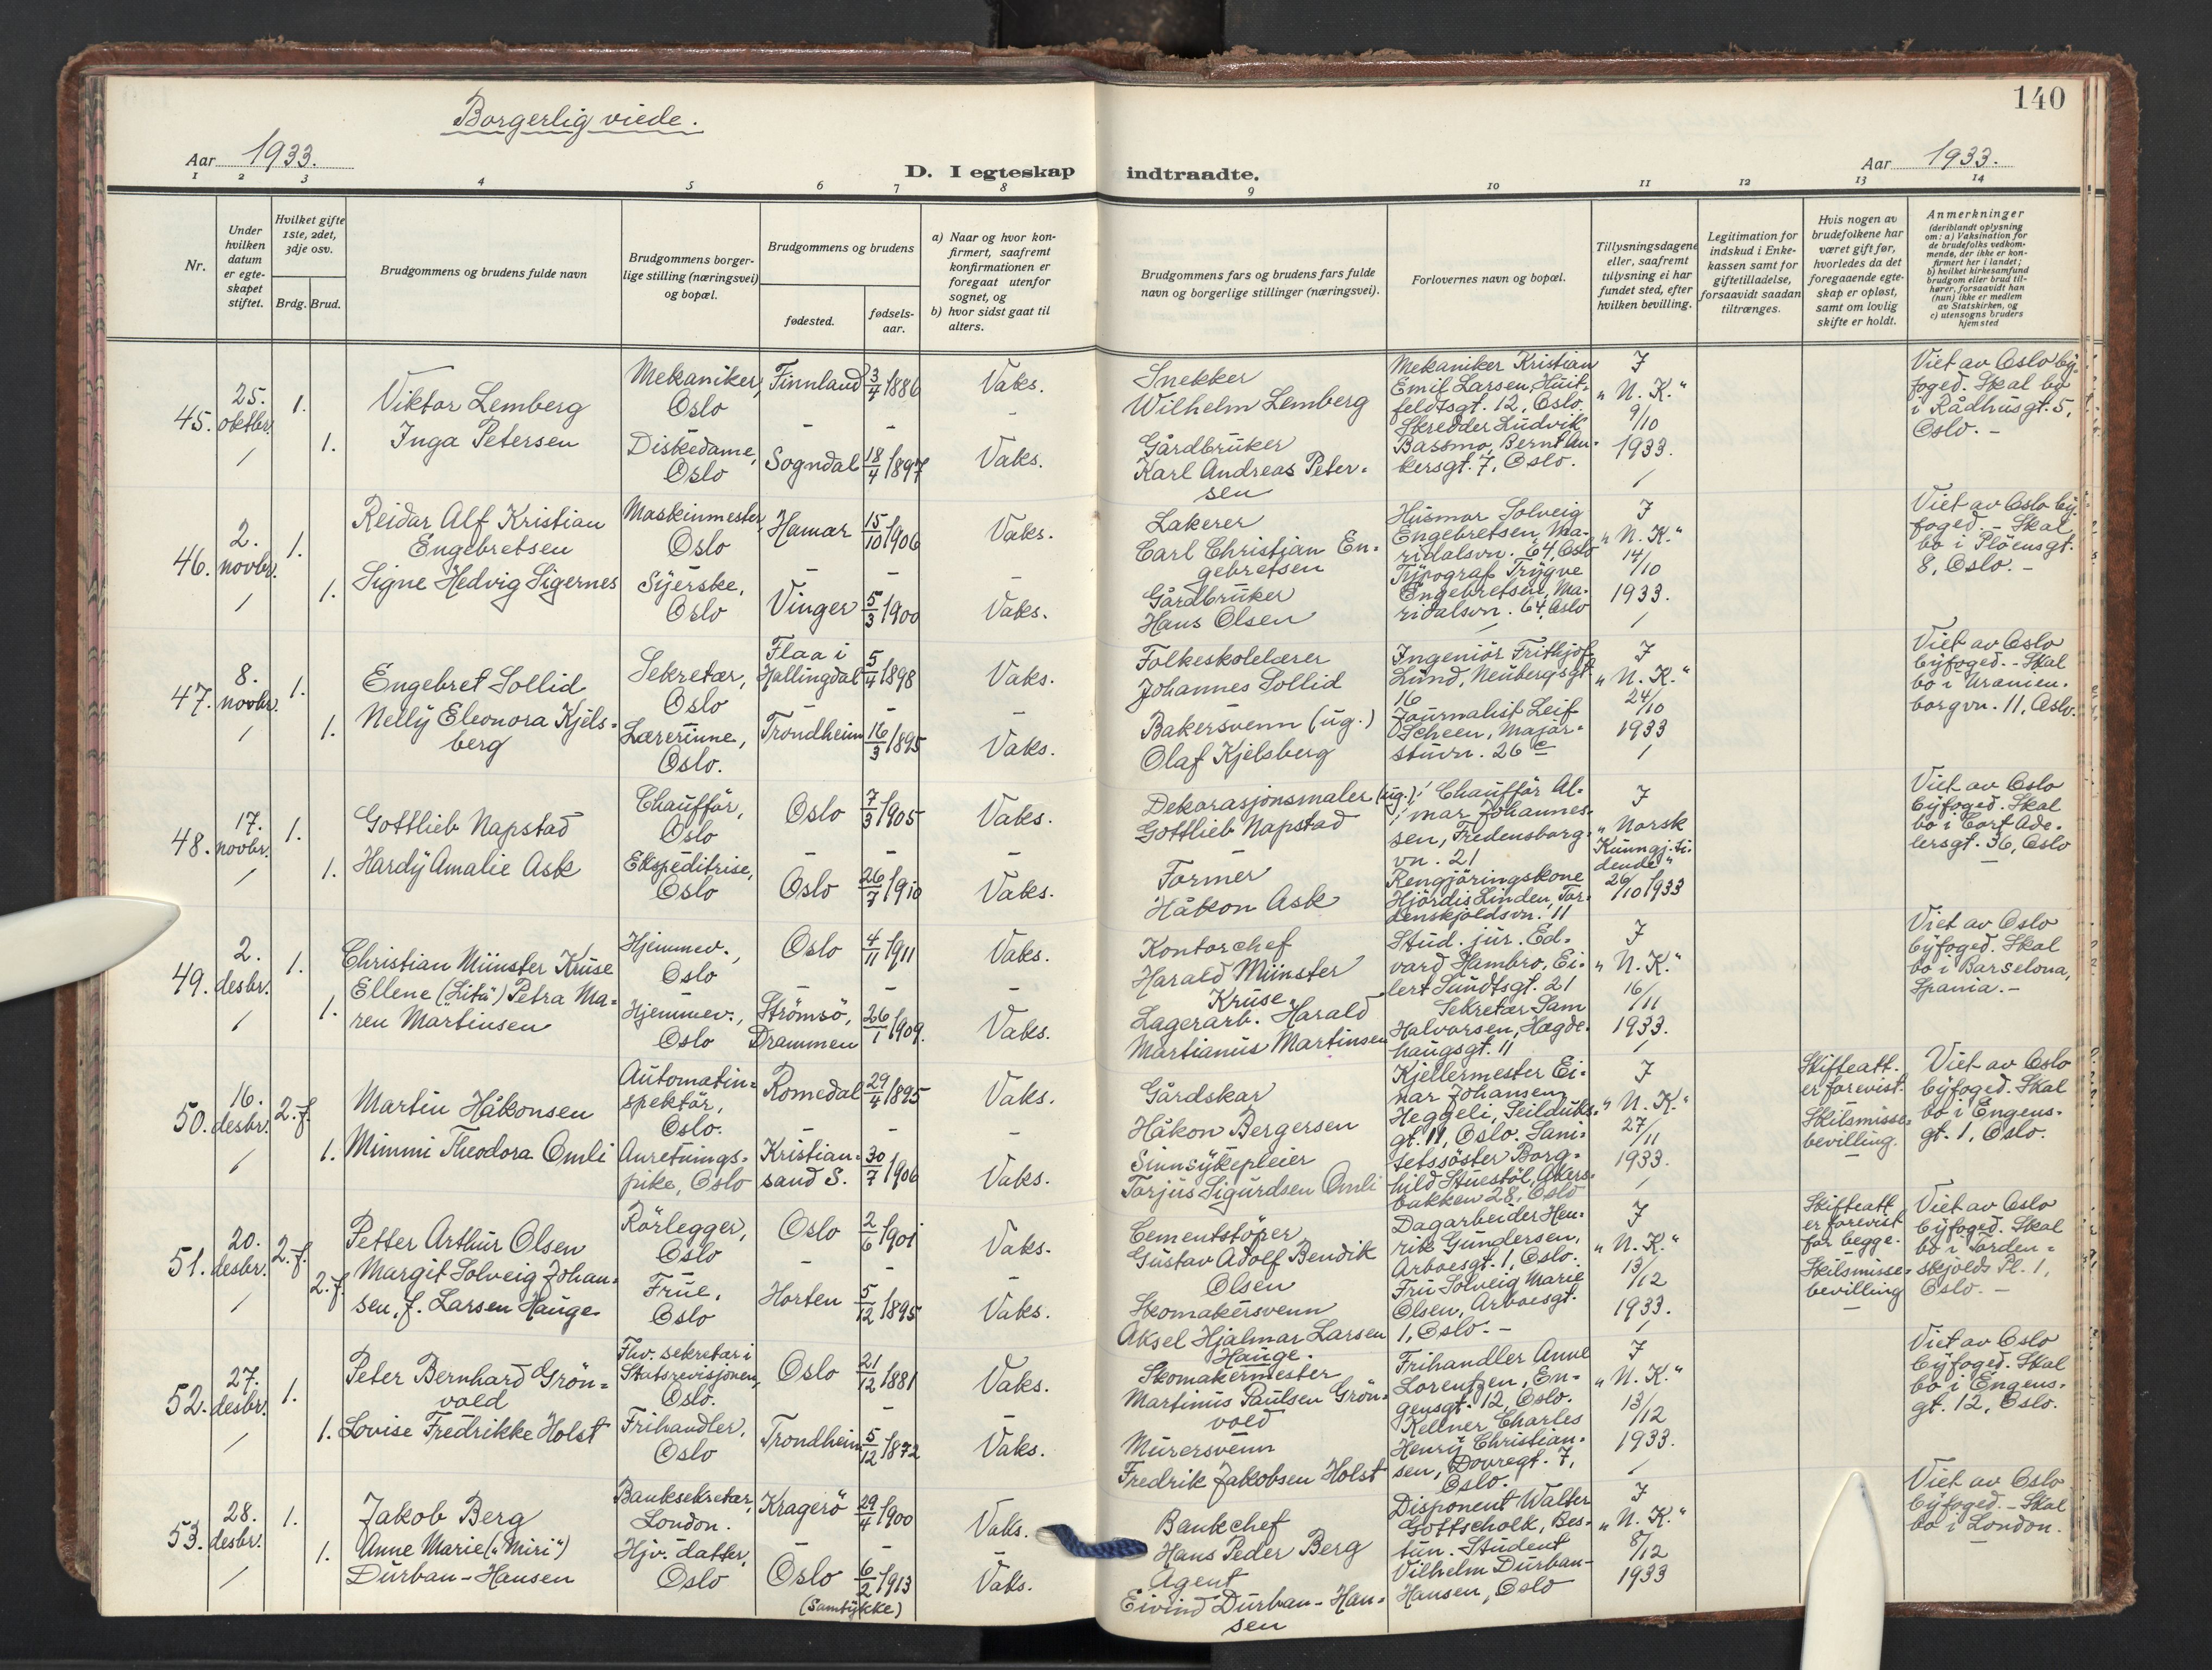 Borgerlig viede.
140
Aar 1933.
D. I egteskap indtraadte.
Aar 1933.
1 2 3 4 5 6 7 8 9 10 11 12 13 14
Nr.
Under hvilken datum er egte-skapet stiftet.
Hvilket gifte 1ste, 2det, 3dje osv.
Brdg. Brud.
Brudgommens og brudens fulde navn
Brudgommens borger-lige stilling (næringsvei) og bopæl.
Brudgommens og brudens
fødested.
fødsels-aar.
a) Naar og hvor kon-firmert, saafremt konfirmationen er foregaat utenfor sognet, og
b) hvor sidst gaat til alters.
Brudgommens fars og brudens fars fulde navn og borgerlige stillinger (næringsvei).
Forlovernes navn og bopæl.
Tillysningsdagene eller, saafremt tillysning ei har fundet sted, efter hvilken bevilling.
Legitimation for indskud i Enke-kassen samt for giftetilladelse, forsaavidt saadan tiltrænges.
Hvis nogen av brudefolkene har været gift før, hvorledes da det foregaaende egte-skap er opløst, samt om lovlig skifte er holdt.
Anmerkninger (deriblandt oplysning om: a) Vaksination for de brudefolks vedkom-mende, der ikke er kon-firmert her i landet; b) hvilket kirkesamfund brudgom eller brud til-hører, forsaavidt han (hun) ikke er medlem av Statskirken, og c) utensogns bruders hjemsted
45. 25. oktbr. 1.
Viktor Lemberg
Mekaniker, Oslo
Finnland 3/4 1886
Vaks.
Snekker
Wilhelm Lemberg
1. Inga Petersen
Diskedame, Oslo
Sogndal 18/4 1897
Vaks.
Gårdbruker
Karl Andreas Peter-
sen
Mekaniker Kristian
Emil Larsen, Huit-
feldtsgt. 12, Oslo.
Skredder Ludvik
Bassmo, Bernt An-
kersgt. 7, Oslo.
I
"N. K."
9/10
1933.
Viet av Oslo by-
foged. Skal bo
i Rådhusgt. 5,
Oslo. -
46. 2. novbr. 1.
Reidar Alf Kristian
Engebretsen
Maskinmester, Oslo
Hamar 15/10 1906
Vaks.
Lakerer
Carl Christian En-
gebretsen
1. Signe Hedvig Sigernes
Syerske, Oslo
Vinger 5/3 1900
Vaks.
Gårdbruker
Hans Olsen
Husmor Solveig
Engebretsen, Ma-
ridalsvn. 64, Oslo
Typograf Trygve
Engebretsen, Ma-
ridalsvn. 64, Oslo
I
"N. K."
14/10
1933.
Viet av Oslo by-
foged. - Skal
bo i Plöensgt.
8, Oslo. -
47. 8. novbr. 1.
Engebret Sollid
Sekretær, Oslo
Flaa i Hallingdal 5/4 1898
Vaks.
Folkeskolelærer
Johannes Sollid
1. Nelly Eleonora Kjels-
berg
Lærerinne, Oslo.
Trondheim 16/3 1895
Vaks.
Bakersvenn (ug.)
Olaf Kjelsberg
Ingeniör Frithjof
Lund, Neubergsgt
16
Journalist Leif
Scheen, Major-
stuvn. 26 c
I
"N. K."
24/10
1933
Viet av Oslo
byfoged. - Skal
bo i Uranien-
borgvn. 11, Oslo.
48. 17. novbr. 1.
Gottlieb Napstad
Chaufför, Oslo
Oslo 7/3 1905
Vaks.
Dekorasjonsmaler (ug.)
Gottlieb Napstad
1. Hardy Amalie Ask
Ekspeditrise, Oslo
Oslo 26/7 1910
Vaks.
Former
Håkon Ask
Chaufför Al-
mar Johannes-
sen, Fredensborg-
vn. 21
Rengjöringskone
Hjördis Linden, Tor-
denskjoldsvn. 11
I
"Norsk
Kunngj. ti-
dende"
26/10 1933
Viet av Oslo
byfoged. Skal
bo i Cort Ade-
lersgt. 36, Oslo
49. 2. desbr. 1.
Christian Münster Kruse
Hjemmev., Oslo
Oslo 4/11 1911
Vaks.
Kontorchef
Harald Münster
Kruse.
1. Ellene (Lita") Petra Ma-
ren Martinsen
Hjemmev., Oslo
Strömsö, Drammen 26/1 1909.
Vaks.
Lagerarb. Harald
Martianus Martinsen
Stud. jur. Ed-
vard Hambro, Ei-
lert Sundtsgt. 21
Sekretær Sam
Halvorsen, Hægde-
haugsgt. 11
I
"N. K."
16/11
1933.
Viet av Oslo
byfoged. Skal
bo i Barselona,
Spania. -
50. 16. desbr. 2. f.
Martin Håkonsen
Automatin-
spektör, Oslo.
Romedal 29/4 1895
Vaks.
Gårdskar
Håkon Bergersen
1. Mimmi Theodora Omli
Anretnings-
pike, Oslo
Kristian-
sand S. 30/7 1906
Vaks.
Sinnsykepleier
Torjus Sigurdsen Omli
Kjellermester Ei-
nar Johansen
Heggeli, Seilduks-
gt. 11, Oslo. Sani-
tetssöster Borg-
hild Stuestöl, Akers-
bakken 28, Oslo
I
"N. K."
27/11
1933.
Skifteatt.
er forevist.
Skilsmisse-
bevilling.
Viet av Oslo
byfoged. Skal
bo i Engens-
gt. 1, Oslo.
51. 20. desbr. 2. f.
Petter Arthur Olsen
Rörlegger, Oslo
Oslo 2/6 1901
Vaks.
Cementstöper
Gustav Adolf Bendik
Olsen
2. f. Margit Solveig Johan-
sen, f. Larsen Hauge
Frue, Oslo
Horten 5/12 1895
Vaks.
Skomakersvenn
Aksel Hjalmar Larsen
Hauge.
Dagarbeider Hen-
rik Gundersen,
Arboesgt. 1, Oslo.
Fru Solveig Marie
Olsen, Arboesgt.
1, Oslo. -
I
"N. K."
13/12
1933.
Skifteatt
er forevist
for begge.
Skilsmisse-
bevilling
Viet av Oslo
byfoged. Skal
bo i Torden-
skjolds Pl. 1,
Oslo. -
52. 27. desbr. 1.
Peter Bernhard Grön-
vold
Fhv. sekretær i
Statsrevisjonen, Oslo.
Oslo 21/12 1881
Vaks.
Skomakermester
Martinus Paulsen Grön-
vold
1. Lovise Fredrikke Holst
Frihandler, Oslo
Trondheim 5/12 1872
Vaks.
Murersvenn
Fredrik Jakobsen Holst
Frihandler Anne
Lorentzen, En-
gensgt. 12, Oslo.
Kellner Charles
Henry Christian-
sen, Dovregt. 7,
Oslo.
I
"N. K."
13/12
1933.
Viet av Oslo
byfoged. Skal
bo i Engens-
gt. 12, Oslo.
53. 28. desbr. 1.
Jakob Berg
Banksekretær, London.
Kragerö 29/4 1900
Vaks.
Bankchef
Hans Peder Berg
1. Anne Marie ("Miri")
Durban-Hansen
Hjv. datter, Oslo
Oslo 6/2 1913
(Samtykke)
Vaks.
Agent
Eivind Durban-Han-
sen
Disponent Walter
Gottscholk, Bes-
tun. Student
Vilhelm Durban-
Hansen, Oslo
I
"N. K."
8/12
1933
Viet av Oslo
byfoged. - Skal
bo i London.